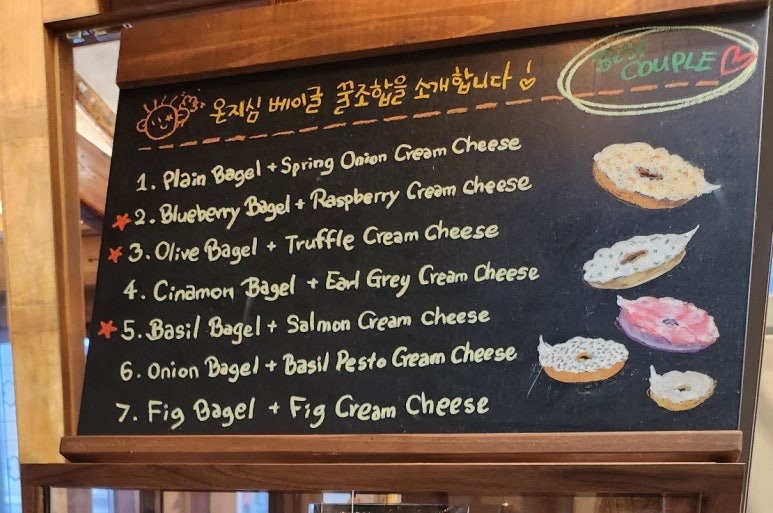 온지심 베이글 꿀조합을 소개합니다!
Best COUPLE
1. Plain Bagel + Spring Onion Cream Cheese
2. Blueberry Bagel + Raspberry Cream cheese
3. Olive Bagel + Truffle Cream Cheese
4. Cinamon Bagel + Earl Grey Cream Cheese
5. Basil Bagel + Salmon Cream cheese
6. Onion Bagel + Basil Pesto Cream Cheese
7. Fig Bagel + Fig Cream Cheese